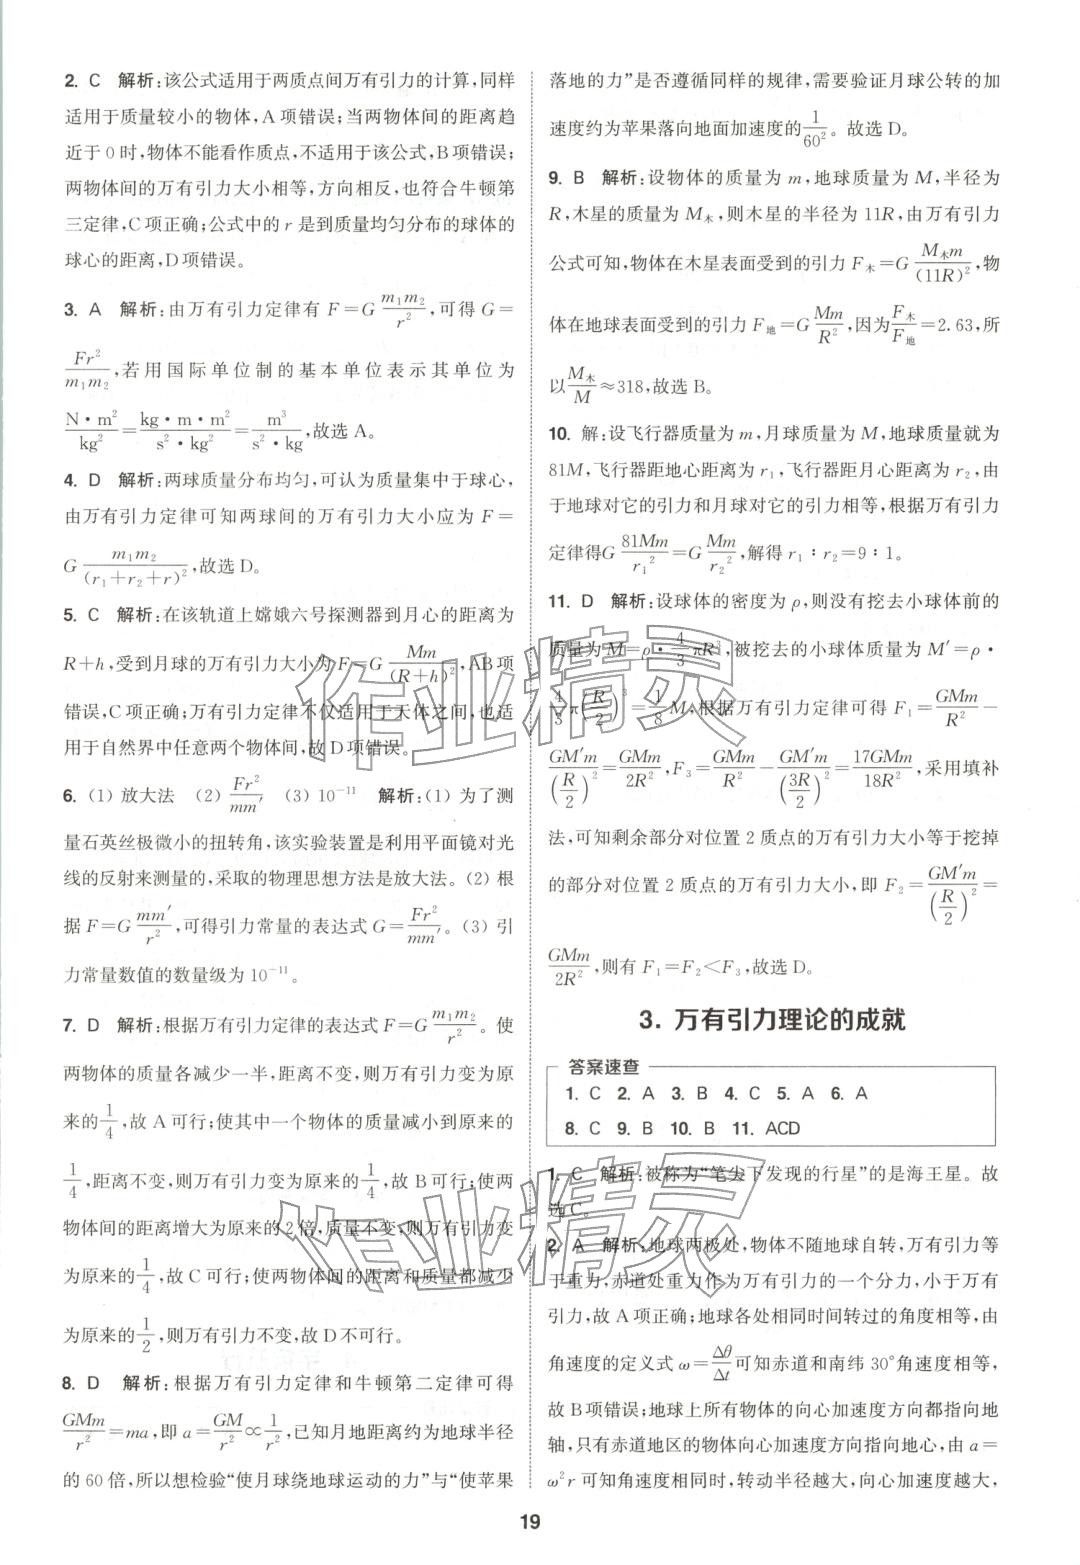 2. C 解析:该公式适用于两质点间万有引力的计算,同样
适用于质量较小的物体,A项错误;当两物体间的距离趋
近于0时,物体不能看作质点,不适用于该公式,B项错误;
两物体间的万有引力大小相等,方向相反,也符合牛顿第
三定律,C项正确;公式中的r是到质量均匀分布的球体的
球心的距离,D项错误。
3. A 解析:由万有引力定律有 F=G m₁m₂/r²,可得 G=
Fr²/m₁m₂,若用国际单位制的基本单位表示其单位为
N·m²/kg²=kg·m·m²/s²·kg²=m³/s²·kg,故选A。
4. D 解析:两球质量分布均匀,可认为质量集中于球心,
由万有引力定律可知两球间的万有引力大小应为 F=
G m₁m₂/(r₁+r₂+r)²,故选D。
5. C 解析:在该轨道上嫦娥六号探测器到月心的距离为
R+h,受到月球的万有引力大小为F=G Mm/(R+h)²,AB项
错误,C项正确;万有引力定律不仅适用于天体之间,也适
用于自然界中任意两个物体间,故D项错误。
6. (1) 放大法 (2) Fr²/mm′ (3) 10⁻¹¹ 解析:(1) 为了测
量石英丝极微小的扭转角,该实验装置是利用平面镜对光
线的反射来测量的,采取的物理思想方法是放大法。(2) 根
据 F=G mm′/r²,可得引力常量的表达式 G=Fr²/mm′。(3) 引
力常量数值的数量级为10⁻¹¹。
7. D 解析:根据万有引力定律的表达式 F=G m₁m₂/r²。使
两物体的质量各减少一半,距离不变,则万有引力变为原
来的1/4,故A可行;使其中一个物体的质量减小到原来的
1/4,距离不变,则万有引力变为原来的1/4,故B可行;使两
物体间的距离增大为原来的2倍,质量不变,则万有引力变
为原来的1/4,故C可行;使两物体间的距离和质量都减少
为原来的1/2,则万有引力不变,故D不可行。
8. D 解析:根据万有引力定律和牛顿第二定律可得
GMm/r²=ma,即 a=GM/r²∝1/r²,已知月地距离约为地球半径
的60倍,所以想检验“使月球绕地球运动的力”与“使苹果
落地的力”是否遵循同样的规律,需要验证月球公转的加
速度约为苹果落向地面加速度的1/60²。故选D。
9. B 解析:设物体的质量为m,地球质量为M,半径为
R,木星的质量为M木,则木星的半径为11R,由万有引力
公式可知,物体在木星表面受到的引力 F木=G M木m/(11R)²,物
体在地球表面受到的引力 F地=G Mm/R²,因为F木/F地=2.63,所
以M木/M≈318,故选B。
10. 解:设飞行器质量为m,月球质量为M,地球质量就为
81M,飞行器距地心距离为r₁,飞行器距月心距离为r₂,由
于地球对它的引力和月球对它的引力相等,根据万有引力
定律得G 81Mm/r₁²=G Mm/r₂²,解得r₁∶r₂=9∶1。
11. D 解析:设球体的密度为ρ,则没有挖去小球体前的
质量为 M=ρ·4/3 πR³,被挖去的小球体质量为 M′=ρ·
4/3 π(R/2)³=1/8 M,根据万有引力定律可得 F₁=GMm/R²-
GM′m/(R/2)²=GMm/2R²,F₃=GMm/R²-GM′m/(3R/2)²=17GMm/18R²,采用填补
法,可知剩余部分对位置2质点的万有引力大小等于挖掉
的部分对位置2质点的万有引力大小,即 F₂=GM′m/(R/2)²=
GMm/2R²,则有 F₁=F₂<F₃,故选D。
3. 万有引力理论的成就
答案速查
1. C 2. A 3. B 4. C 5. A 6. A
8. C 9. B 10. B 11. ACD
1. C 解析:被称为“笔尖下发现的行星”的是海王星。故
选C。
2. A 解析:地球两极处,物体不随地球自转,万有引力等
于重力,赤道处重力作为万有引力的一个分力,小于万有
引力,故A项正确;地球各处相同时间转过的角度相等,由
角速度的定义式 ω=Δθ/Δt 可知赤道和南纬30°角速度相等,
故B项错误;地球上所有物体的向心加速度方向都指向地
轴,只有赤道地区的物体向心加速度方向指向地心,由 a=
ω²r 可知角速度相等时,转动半径越大,向心加速度越大,
19
作业精灵
作业精灵